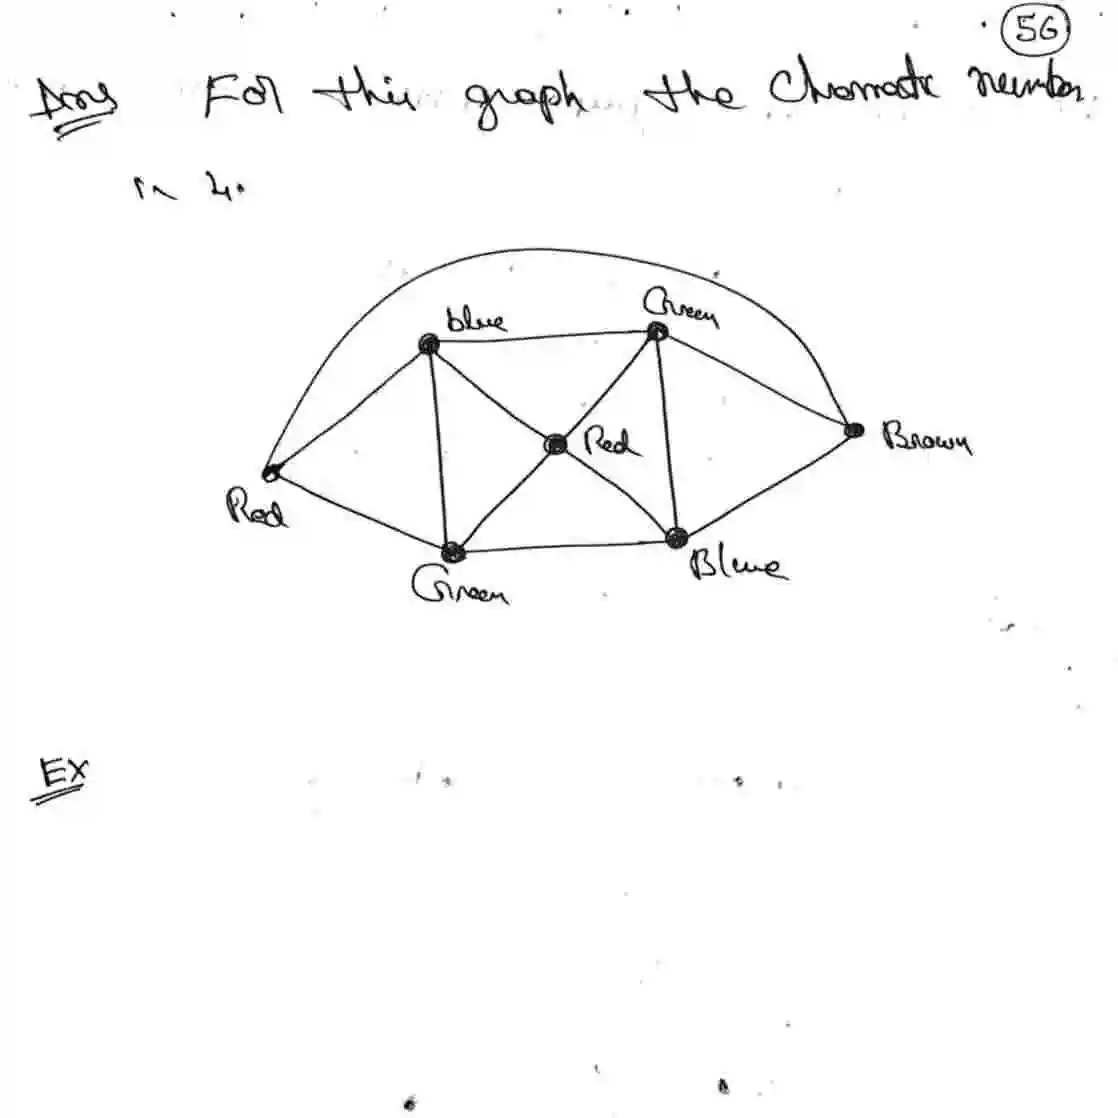 56
Ans For this graph the Chromatic number
is 4.
Green
blue
Red
Brown
Red
Blue
Green
Ex